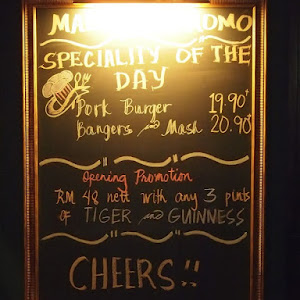 SPECIALITY OF THE
DAY
Pork Burger 19.90+
Bangers and Mash 20.90+
Opening Promotion
RM 48 nett with any 3 pints
of TIGER and GUINNESS
CHEERS!!